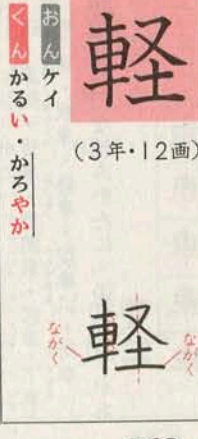 軽
(3年・12画)
おん ケイ
くん かるい・かろやか
軽
ながく
ながく